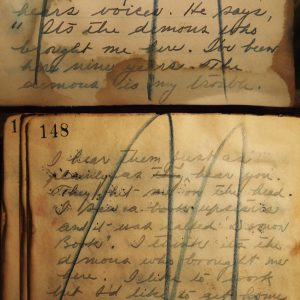 hears voices. He says,
"Its the demons who
brought me here. I've been
here nine years. The
demons is my trouble.
1 148
I hear them just as
plainly as I hear you.
They hit me on the head.
I saw a book upstairs
and it was called "Demon
Book". I think its the
demons who brought me
here. I like to work
but I'd like to go home